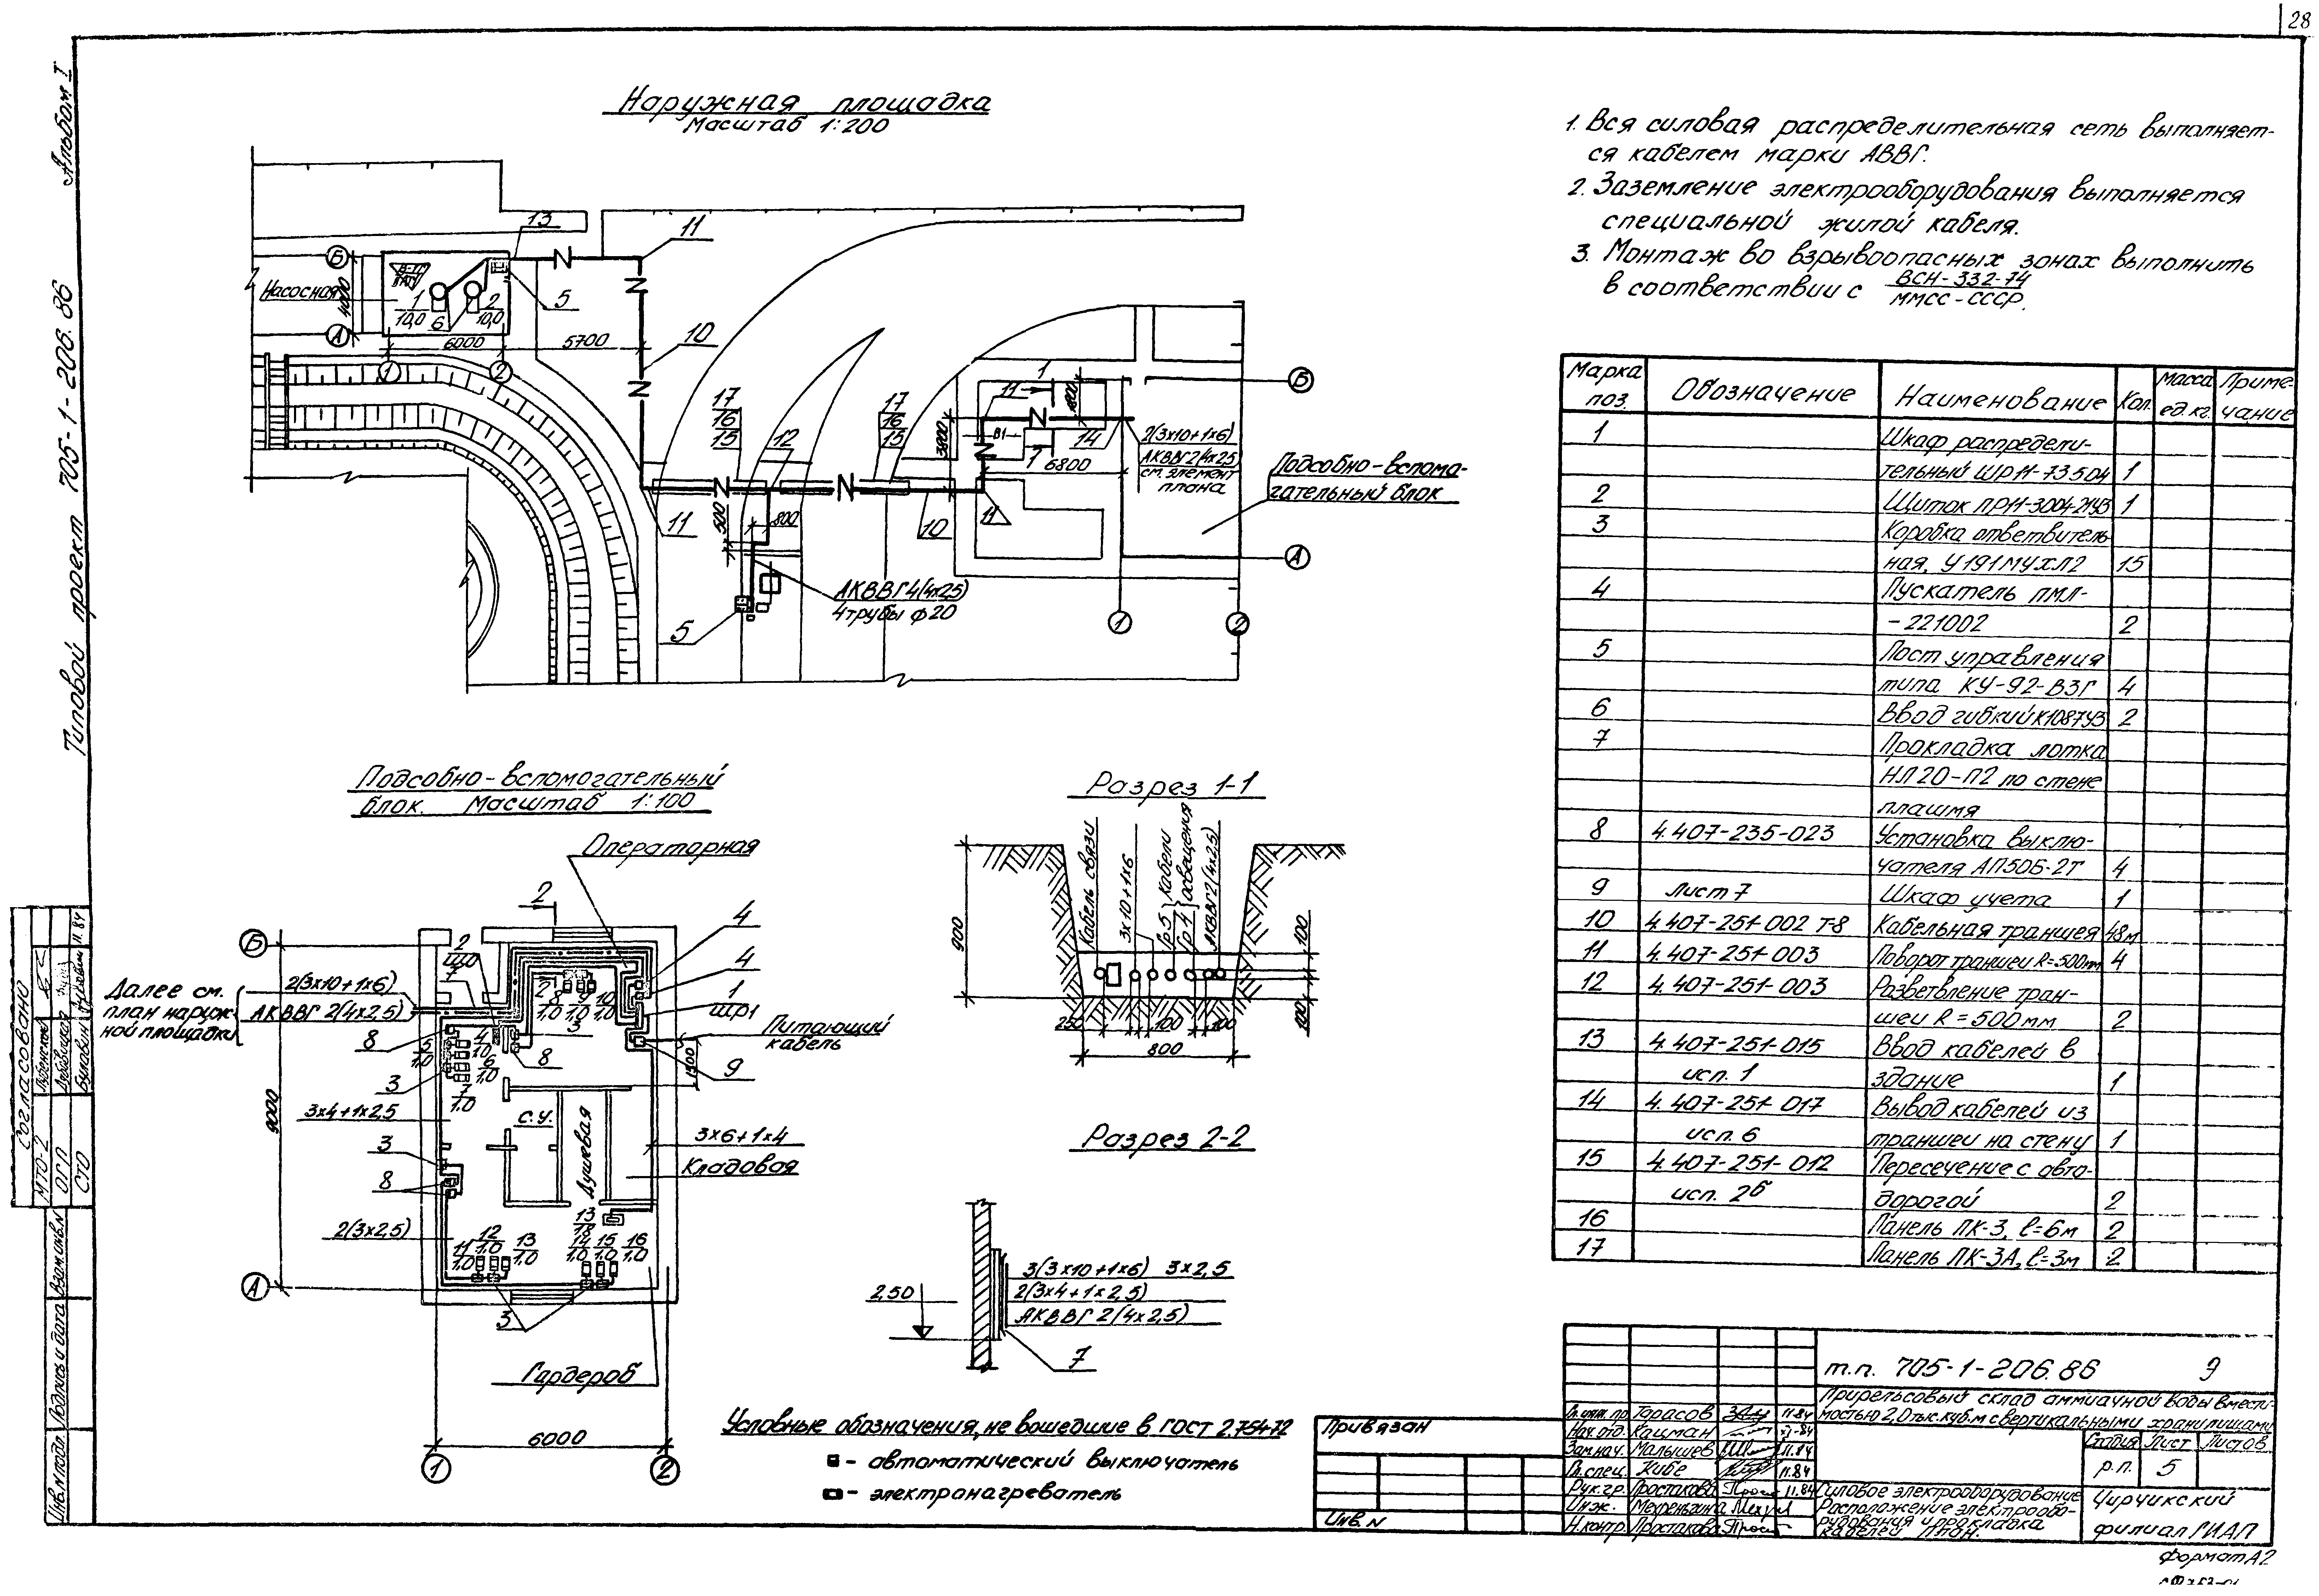 28
Альбом I
Типовой проект 705-1-206.86
Наружная площадка
Масштаб 1:200
13
11
Б
Насосная
4000
1
10,0
6
2
10,0
5
А
6000
5700
10
1
2
17
16
15
12
17
16
15
11
500
800
10
11
АКВВГ4(4х2,5)
4 трубы ф20
5
1
11
1800
Б
3800
В1
1
14
2(3х10+1х6)
АКВВГ 2(4х2,5)
см. элемент
плана
6800
Подсобно-вспома-
гательный блок
А
1
2
1. Вся силовая распределительная сеть выполняет-
ся кабелем марки АВВГ.
2. Заземление электрооборудования выполняется
специальной жилой кабеля.
3. Монтаж во взрывоопасных зонах выполнить
в соответствии с ВСН-332-74
ММСС-СССР.
Марка поз. Обозначение Наименование Кол. Масса ед.кг. Приме-чание
1 Шкаф распредели-
тельный ШР11-73504 1
2 Щиток ПР11-3004-21У3 1
3 Коробка ответвитель
ная, У191МУХЛ2 15
4 Пускатель ПМЛ-
-221002 2
5 Пост управления
типа КУ-92-ВЗГ 4
6 Ввод гибкий К1087У3 2
7 Прокладка лотка
НЛ20-П2 по стене
плашмя
8 4.407-235-023 Установка выклю-
чателя АП50Б-2Т 4
9 Лист 7 Шкаф учета 1
10 4.407-251-002 Т-8 Кабельная траншея 48м
11 4.407-251-003 Поворот траншеи R=500мм 4
12 4.407-251-003 Разветвление тран-
шеи R=500мм 2
13 4.407-251-015 Ввод кабелей в
исп. 1 здание 1
14 4.407-251-017 Вывод кабелей из
исп. 6 траншеи на стену 1
15 4.407-251-012 Пересечение с авто-
исп. 2б дорогой 2
16 Панель ПК-3, l=6м 2
17 Панель ПК-3А, l=3м 2
Подсобно-вспомогательный
блок. Масштаб 1:100
Операторная
2
4
4
1
ШР1
Питающий
кабель
1500
9
Б
2
ЩО
7
2(3х10+1х6)
АКВВГ 2(4х2,5)
Далее см.
план наруж-
ной площадки
2
8
1,0
9
1,0
10
1,0
3
8
8
5
1,0
4
1,0
6
1,0
7
1,0
3
3х4+1х2,5
9000
с.у.
Душевая
3х6+1х4
Кладовая
3
8
2(3х2,5)
11
1,0
12
1,0
13
1,0
13
18
14
1,0
15
1,0
16
1,0
А
3
Гардероб
6000
1
2
Разрез 1-1
Кабель связи
3х10+1х6
Гр.5
Гр.4
кабели
освещения
АКВВГ2(4х2,5)
900
100
100
250
100
100
800
Разрез 2-2
2,50
3(3х10+1х6) 3х2,5
2(3х4+1х2,5)
АКВВГ 2(4х2,5)
7
Условные обозначения, не вошедшие в ГОСТ 2.754-72
- автоматический выключатель
- электронагреватель
Привязан
Инв.N
т.п. 705-1-206.86 9
Прирельсовый склад аммиачной воды вмести-
мостью 2,0 тыс.куб.м с вертикальными хранилищами
Гл.инж.пр. Тарасов 11.84
Нач.отд. Кацман
Зам.нач. Малышев 11.84
Гл.спец. Кибе 11.84
Рук.гр. Простакова 11.84
Инж.
Н.контр. Простакова
Стадия Лист Листов
р.п. 5
Силовое электрооборудование
Расположение электрообо-
рудования и прокладка
кабелей План.
Чирчикский
филиал ГИАП
Формат А2
Согласовано
МТО-2
ОГП
СТО
11.84
Инв.N подл. Подпись и дата Взам.инв.N